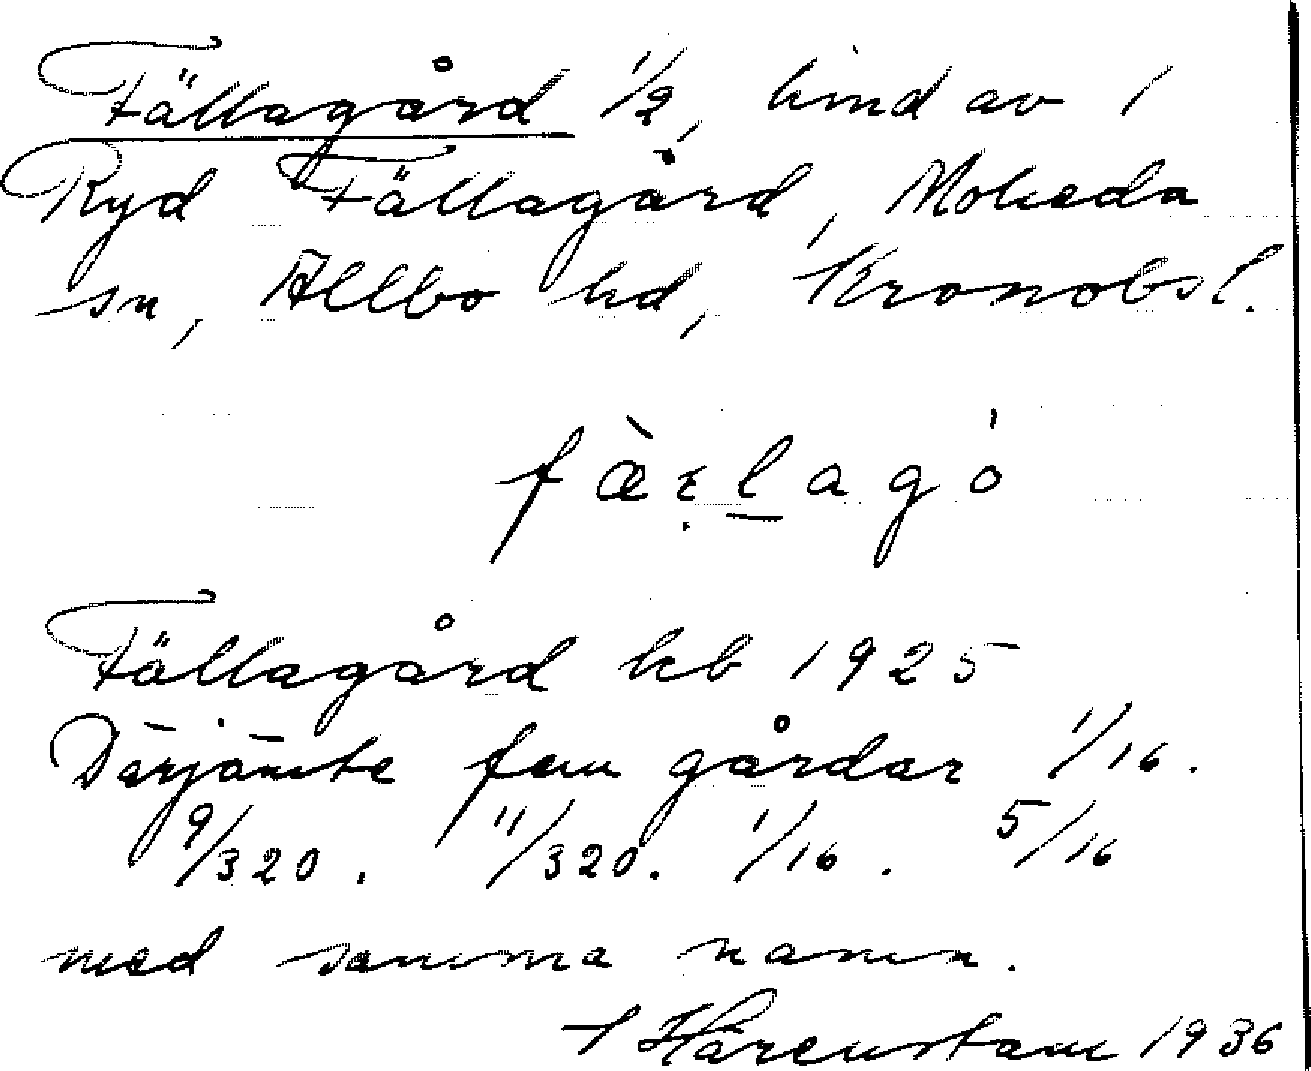 Fällagård 1/2, hmd av 1
Ryd Fällagård, Moheda
sn, Allbo hd, Kronobsl.
fæ̀ɛlagó
Fällagård hb 1925
Därjämte fem gårdar 1/16.
9/320. 11/320. 1/16. 5/16
med samma namn.
Härenstam 1936